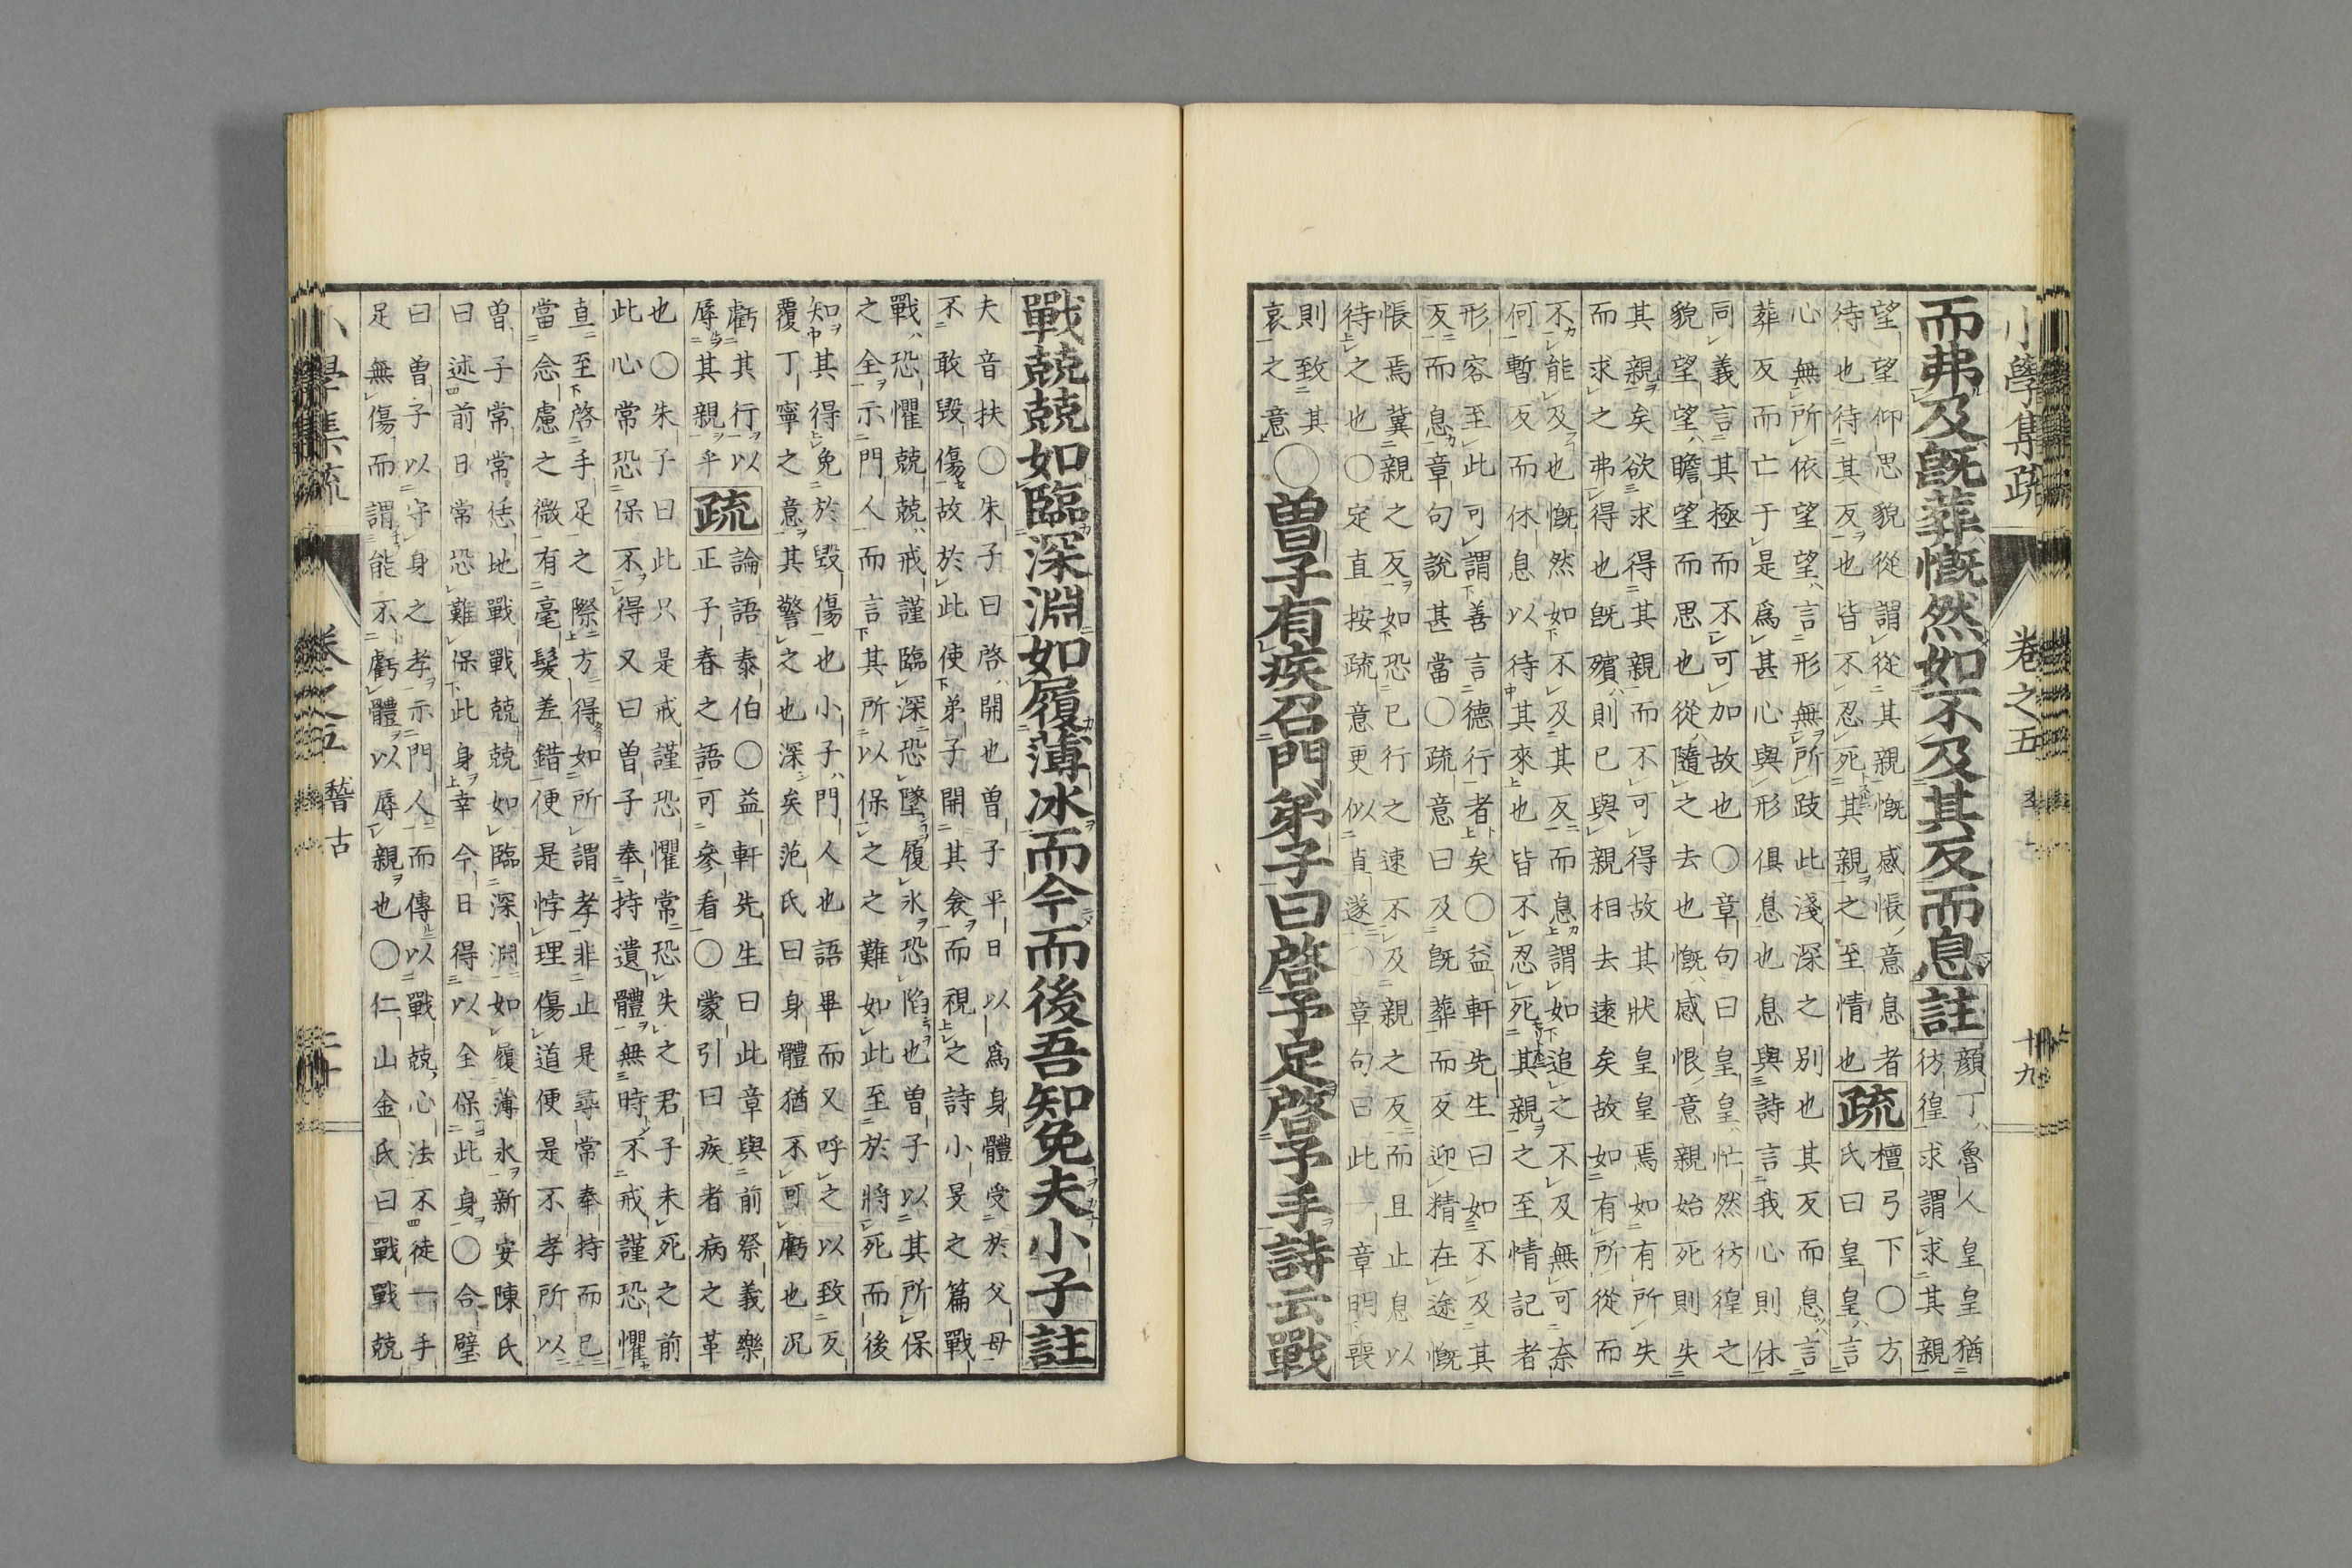 小學集疏
卷之五
十九
而弗及既葬慨然如不及其反而息註
顔丁魯人皇皇猶
彷徨求謂求其親
望望仰思貌從謂從其親慨感悵意息者
待也待其反也皆不忍死其親之至情也疏
檀弓下〇方
氏曰皇皇言
心無所依望望言形無所跂此淺深之別也其反而息言
葬反而亡于是爲甚心與形俱息也息與詩言我心則休
同義言其極而不可加故也〇章句曰皇皇忙然彷徨之
貌望望瞻望而思也從隨之去也慨感恨意親始死則失
其親矣欲求得其親而不可得故其狀皇皇焉如有所失
而求之弗得也既殯則已與親相去遠矣故如有所從而
不能及也慨然如不及其反而息謂如追之不及無可奈
何暫反而休息以待其來也皆不忍死其親之至情記者
形容至此可謂善言德行者矣〇益軒先生曰如不及其
反而息章句說甚當〇疏意曰及既葬而反迎精在途慨
悵焉冀親之反如恐已行之速不及親之反而且止息以
待之也〇定直按疏意更似直遂〇章句曰此一章明喪
則致其
哀之意〇曾子有疾召門弟子曰啓予足啓予手詩云戰
戰兢兢如臨深淵如履薄冰而今而後吾知免夫小子註
夫音扶〇朱子曰啓開也曾子平日以爲身體受於父母
不敢毀傷故於此使弟子開其衾而視之詩小旻之篇戰
戰恐懼兢兢戒謹臨深恐墜履氷恐陷也曾子以其所保
之全示門人而言其所以保之之難如此至於將死而後
知其得免於毀傷也小子門人也語畢而又呼之以致反
覆丁寧之意其警之也深矣范氏曰身體猶不可虧也況
虧其行以
辱其親乎疏
論語泰伯〇益軒先生曰此章與前祭義樂
正子春之語可參看〇蒙引曰疾者病之革
也〇朱子曰此只是戒謹恐懼常恐失之君子未死之前
此心常恐保不得又曰曾子奉持遺體無時不戒謹恐懼
直至啓手足之際方得如所謂孝非止是尋常奉持而已
當念慮之微有毫髮差錯便是悖理傷道便是不孝所以
曾子常常恁地戰戰兢兢如臨深淵如履薄氷新安陳氏
曰述前日常恐難保此身幸今日得以全保此身〇合璧
曰曾子以守身之孝示門人而傳以戰兢心法不徒一手
足無傷而謂能不虧體以辱親也〇仁山金氏曰戰戰兢
稽古